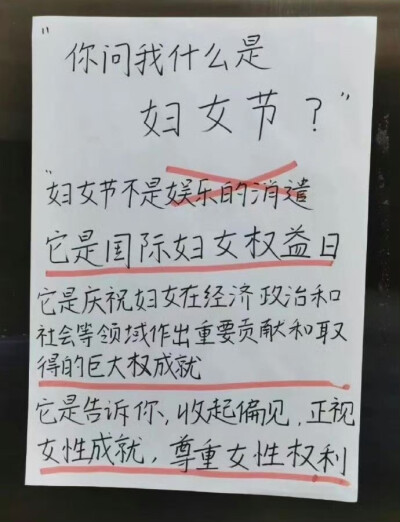 "你问我什么是
妇女节？"
"妇女节不是娱乐的消遣
它是国际妇女权益日
它是庆祝妇女在经济政治和
社会等领域作出重要贡献和取
得的巨大权成就
它是告诉你,收起偏见,正视
女性成就,尊重女性权利